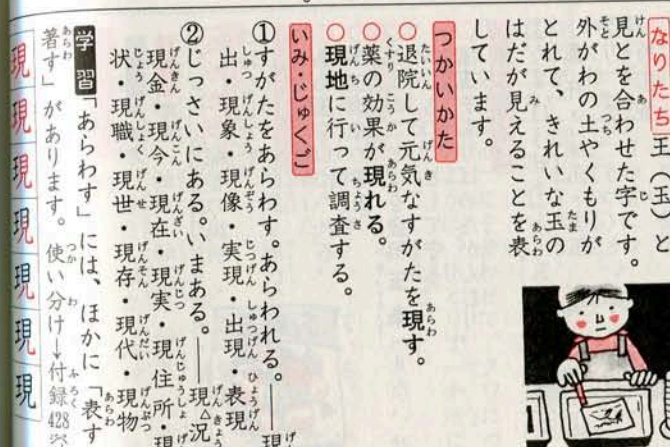 なりたち 王（玉）と
見とを合わせた字です。
外がわの土やくもりが
とれて、きれいな玉の
はだが見えることを表
しています。
つかいかた
○退院して元気なすがたを現す。
○薬の効果が現れる。
○現地に行って調査する。
いみ・じゅくご
①すがたをあらわす。あらわれる。――現
出・現象・現像・実現・出現・表現
②じっさいにある。いまある。――現△況
現金・現今・現在・現実・現住所・現
状・現職・現世・現存・現代・現物
学習「あらわす」には、ほかに「表す
著す」があります。使い分け→付録428
現
現
現
現
現
現
現